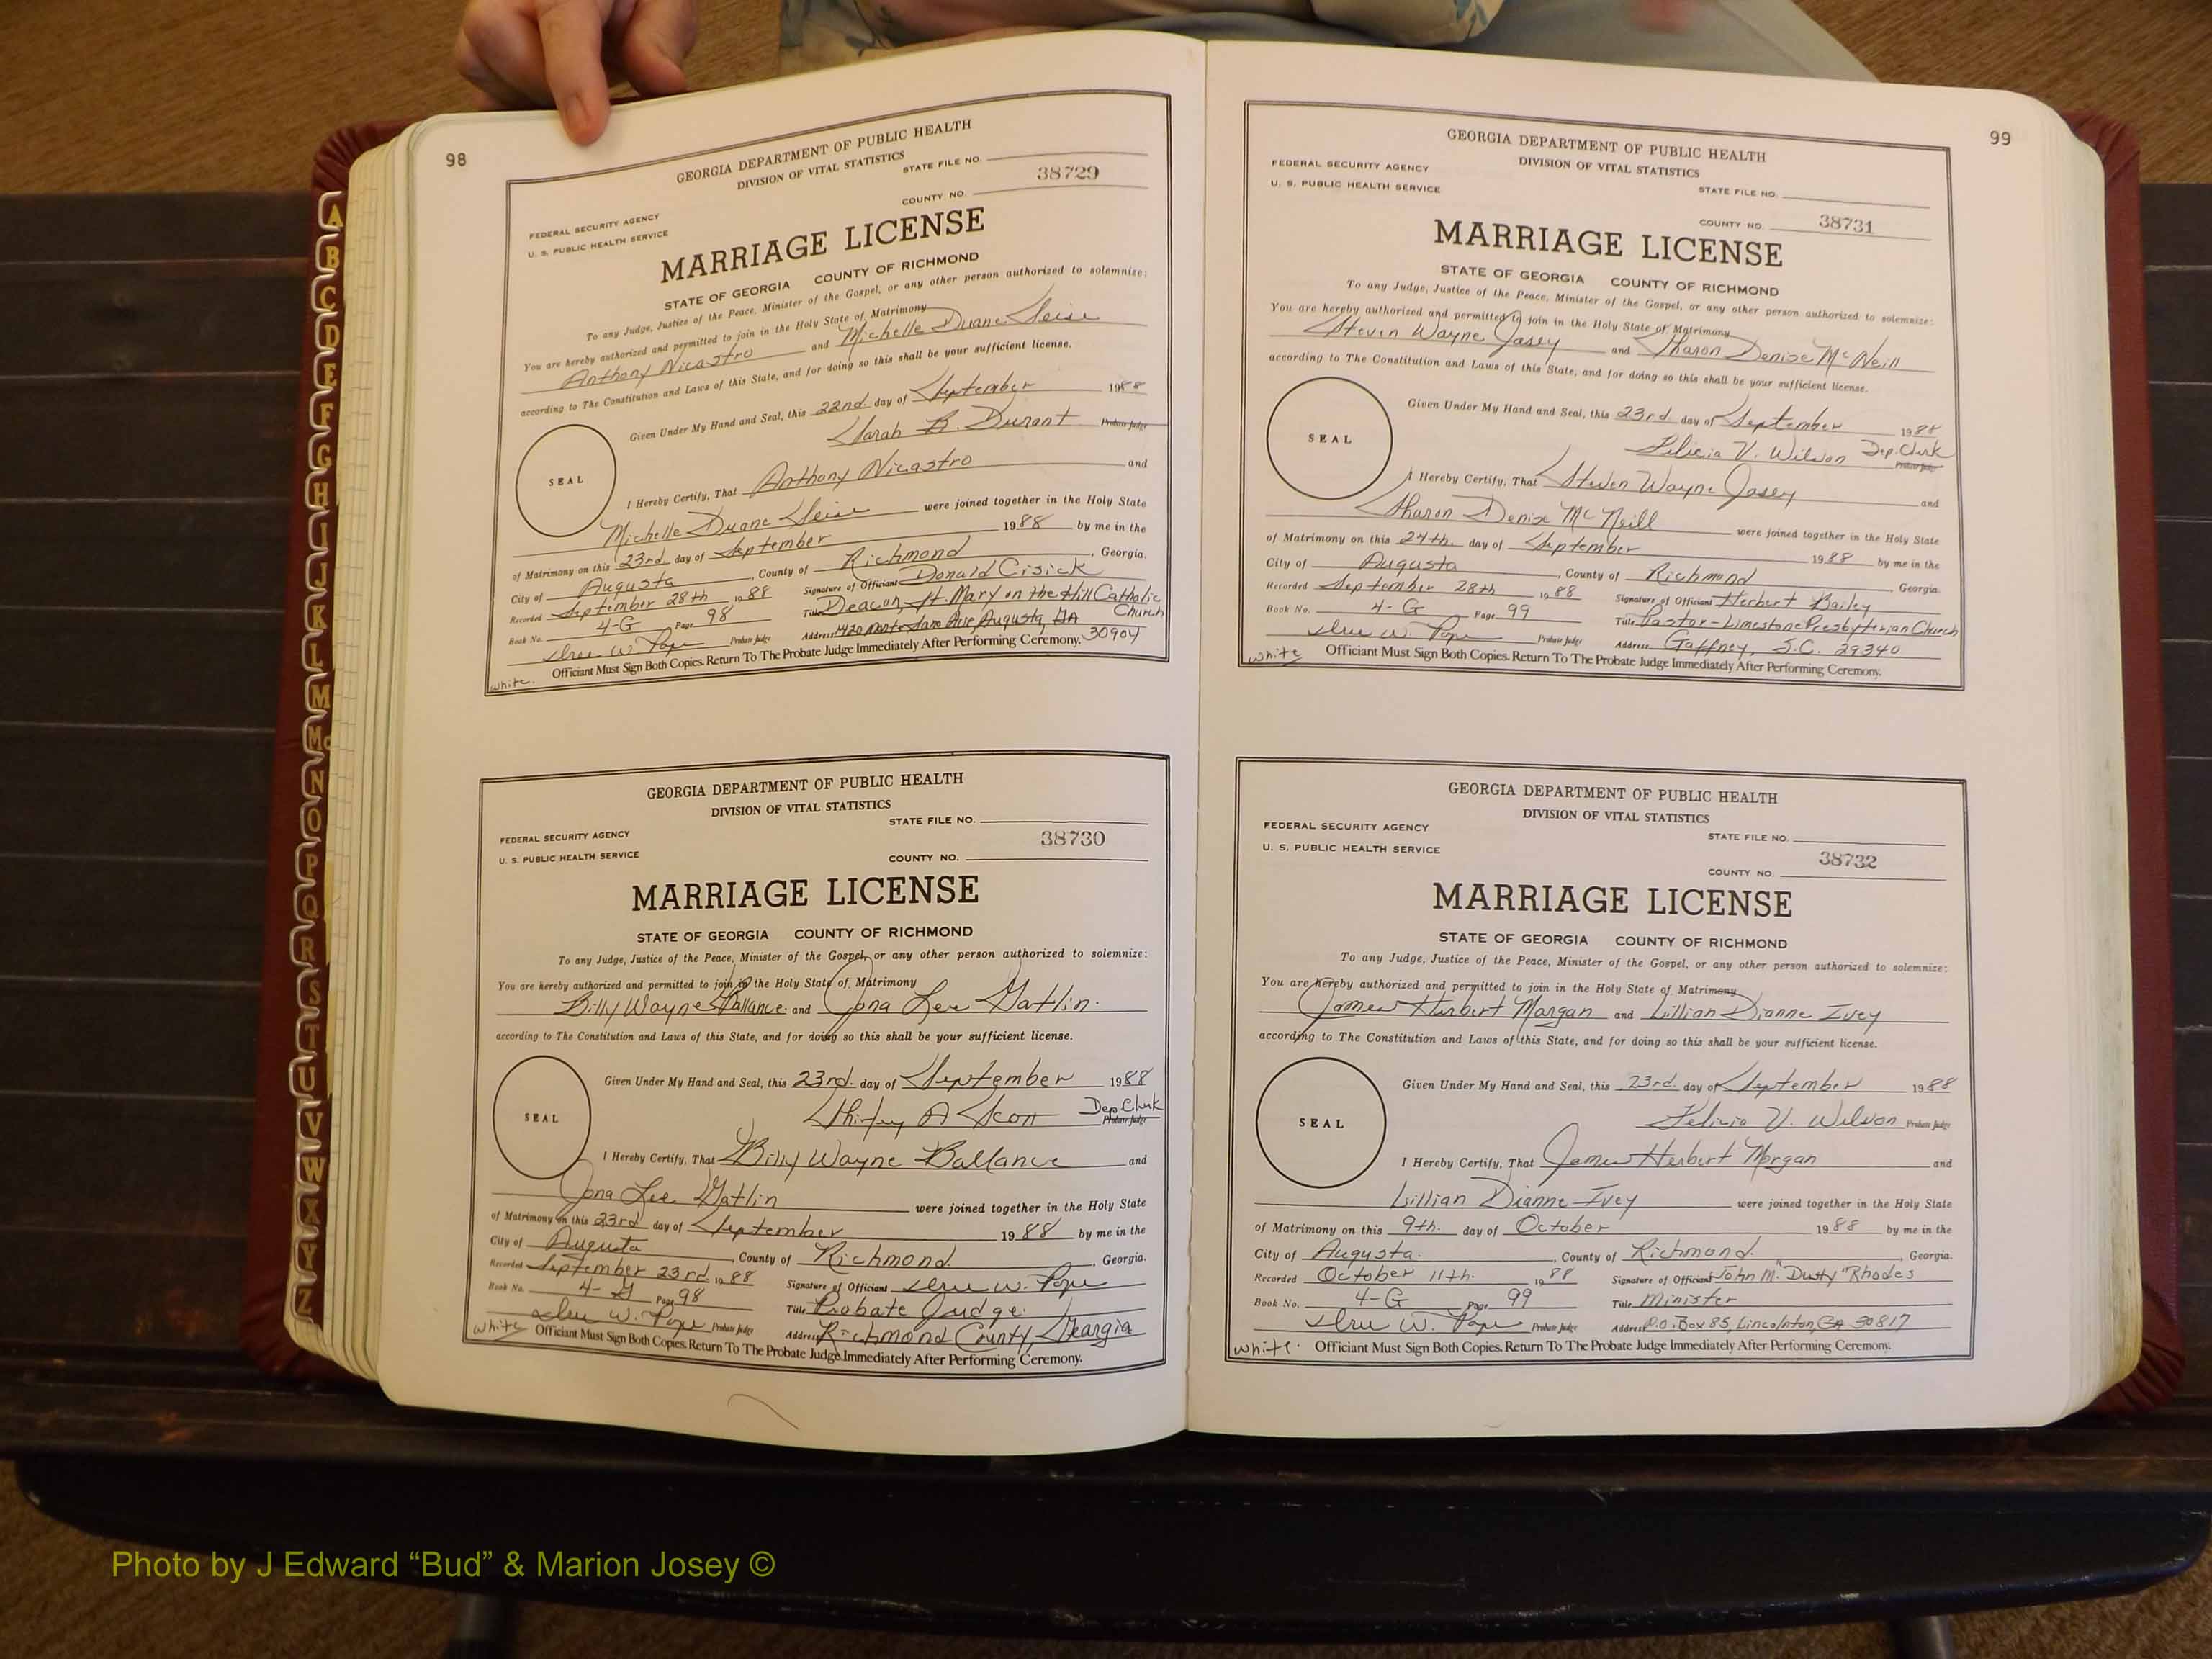 98
GEORGIA DEPARTMENT OF PUBLIC HEALTH
DIVISION OF VITAL STATISTICS
STATE FILE NO.
38729
FEDERAL SECURITY AGENCY
COUNTY NO.
U. S. PUBLIC HEALTH SERVICE
MARRIAGE LICENSE
STATE OF GEORGIA COUNTY OF RICHMOND
To any Judge, Justice of the Peace, Minister of the Gospel, or any other person authorized to solemnize:
You are hereby authorized and permitted to join in the Holy State of Matrimony
Anthony Nicastro and Michelle Duane
according to The Constitution and Laws of this State, and for doing so this shall be your sufficient license.
Given Under My Hand and Seal, this 22nd. day of September 1988
Sarah B. Durant Probate Judge
SEAL
I Hereby Certify, That Anthony Nicastro and
Michelle Duane were joined together in the Holy State
of Matrimony on this 23rd day of September 1988 by me in the
City of Augusta, County of Richmond, Georgia.
Recorded September 28th 1988 Signature of Officiant Donald Cisick
Book No. 4-G Page 98 Title Deacon, St. Mary on the Hill Catholic Church
Probate Judge Address 1420 Monte Sano Ave Augusta, GA 30904
Officiant Must Sign Both Copies. Return To The Probate Judge Immediately After Performing Ceremony.
white.
GEORGIA DEPARTMENT OF PUBLIC HEALTH
DIVISION OF VITAL STATISTICS
STATE FILE NO.
FEDERAL SECURITY AGENCY
38730
U. S. PUBLIC HEALTH SERVICE
COUNTY NO.
MARRIAGE LICENSE
STATE OF GEORGIA COUNTY OF RICHMOND
To any Judge, Justice of the Peace, Minister of the Gospel, or any other person authorized to solemnize:
You are hereby authorized and permitted to join in the Holy State of Matrimony
Billy Wayne Ballance and Jona Lee Gatlin.
according to The Constitution and Laws of this State, and for doing so this shall be your sufficient license.
Given Under My Hand and Seal, this 23rd. day of September 1988
Shirley A Scott Dep. Clerk
Probate Judge
SEAL
I Hereby Certify, That Billy Wayne Ballance and
Jona Lee Gatlin were joined together in the Holy State
of Matrimony on this 23rd day of September 1988 by me in the
City of Augusta, County of Richmond, Georgia.
Recorded September 23rd 1988 Signature of Officiant W. Pope
Book No. 4-G Page 98 Title Probate Judge.
W. Pope Probate Judge Address Richmond County, Georgia
white Officiant Must Sign Both Copies. Return To The Probate Judge Immediately After Performing Ceremony.
99
GEORGIA DEPARTMENT OF PUBLIC HEALTH
DIVISION OF VITAL STATISTICS
FEDERAL SECURITY AGENCY
STATE FILE NO.
U. S. PUBLIC HEALTH SERVICE
COUNTY NO. 38731
MARRIAGE LICENSE
STATE OF GEORGIA COUNTY OF RICHMOND
To any Judge, Justice of the Peace, Minister of the Gospel, or any other person authorized to solemnize:
You are hereby authorized and permitted to join in the Holy State of Matrimony
Steven Wayne Josey and Sharon Denise McNeill
according to The Constitution and Laws of this State, and for doing so this shall be your sufficient license.
Given Under My Hand and Seal, this 23rd day of September 1988
Felicia V. Wilson Dep. Clerk
Probate Judge
SEAL
I Hereby Certify, That Steven Wayne Josey and
Sharon Denise McNeill were joined together in the Holy State
of Matrimony on this 24th. day of September 1988 by me in the
City of Augusta, County of Richmond Georgia.
Recorded September 28th 1988 Signature of Officiant Herbert Bailey
Book No. 4-G Page 99 Title Pastor - Limestone Presbyterian Church
W. Pope Probate Judge Address Gaffney, S.C. 29340
white Officiant Must Sign Both Copies. Return To The Probate Judge Immediately After Performing Ceremony.
GEORGIA DEPARTMENT OF PUBLIC HEALTH
DIVISION OF VITAL STATISTICS
FEDERAL SECURITY AGENCY
STATE FILE NO.
U. S. PUBLIC HEALTH SERVICE
38732
COUNTY NO.
MARRIAGE LICENSE
STATE OF GEORGIA COUNTY OF RICHMOND
To any Judge, Justice of the Peace, Minister of the Gospel, or any other person authorized to solemnize:
You are hereby authorized and permitted to join in the Holy State of Matrimony
James Herbert Morgan and Lillian Dianne Ivey
according to The Constitution and Laws of this State, and for doing so this shall be your sufficient license.
Given Under My Hand and Seal, this 23rd. day of September 1988
Felicia V. Wilson Probate Judge
SEAL
I Hereby Certify, That James Herbert Morgan and
Lillian Dianne Ivey were joined together in the Holy State
of Matrimony on this 9th. day of October 1988 by me in the
City of Augusta. , County of Richmond. Georgia.
Recorded October 11th. 1988 Signature of Officiant John M. "Dusty" Rhodes
Book No. 4-G Page 99 Title Minister
W. Pope Probate Judge Address P.O. Box 85, Lincolnton, GA 30817
white. Officiant Must Sign Both Copies. Return To The Probate Judge Immediately After Performing Ceremony.
A
B
C
D
E
F
G
H
I
J
K
L
M
Mc
N
O
P
Q
R
S
T
U
V
W
X
Y
Z
Photo by J Edward “Bud” & Marion Josey ©